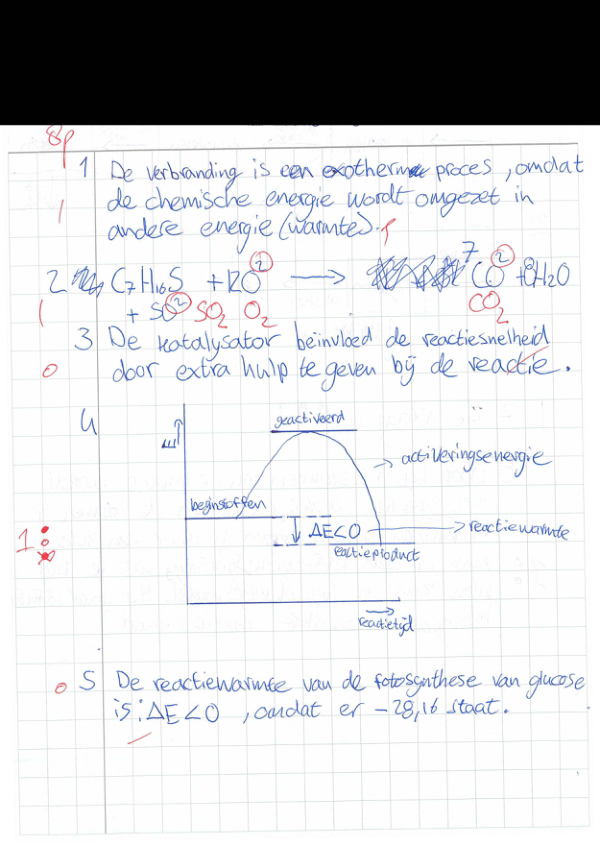 8p
1 De verbranding is een exotherme proces, omdat
de chemische energie wordt omgezet in
1 andere energie (warmte).
2 C7H16S + 12O2 → 7CO2 + 8H2O
1 + SO2 SO2 O2 CO2
3 De katalysator beïnvloed de reactiesnelheid
0 door extra hulp te geven bij de reactie.
4
geactiveerd
E
→ activeringsenergie
beginstoffen
ΔE<0 → reactiewarmte
reactieproduct
1
reactietijd
0 5 De reactiewarmte van de fotosynthese van glucose
is: ΔE<0, omdat er -28,16 staat.